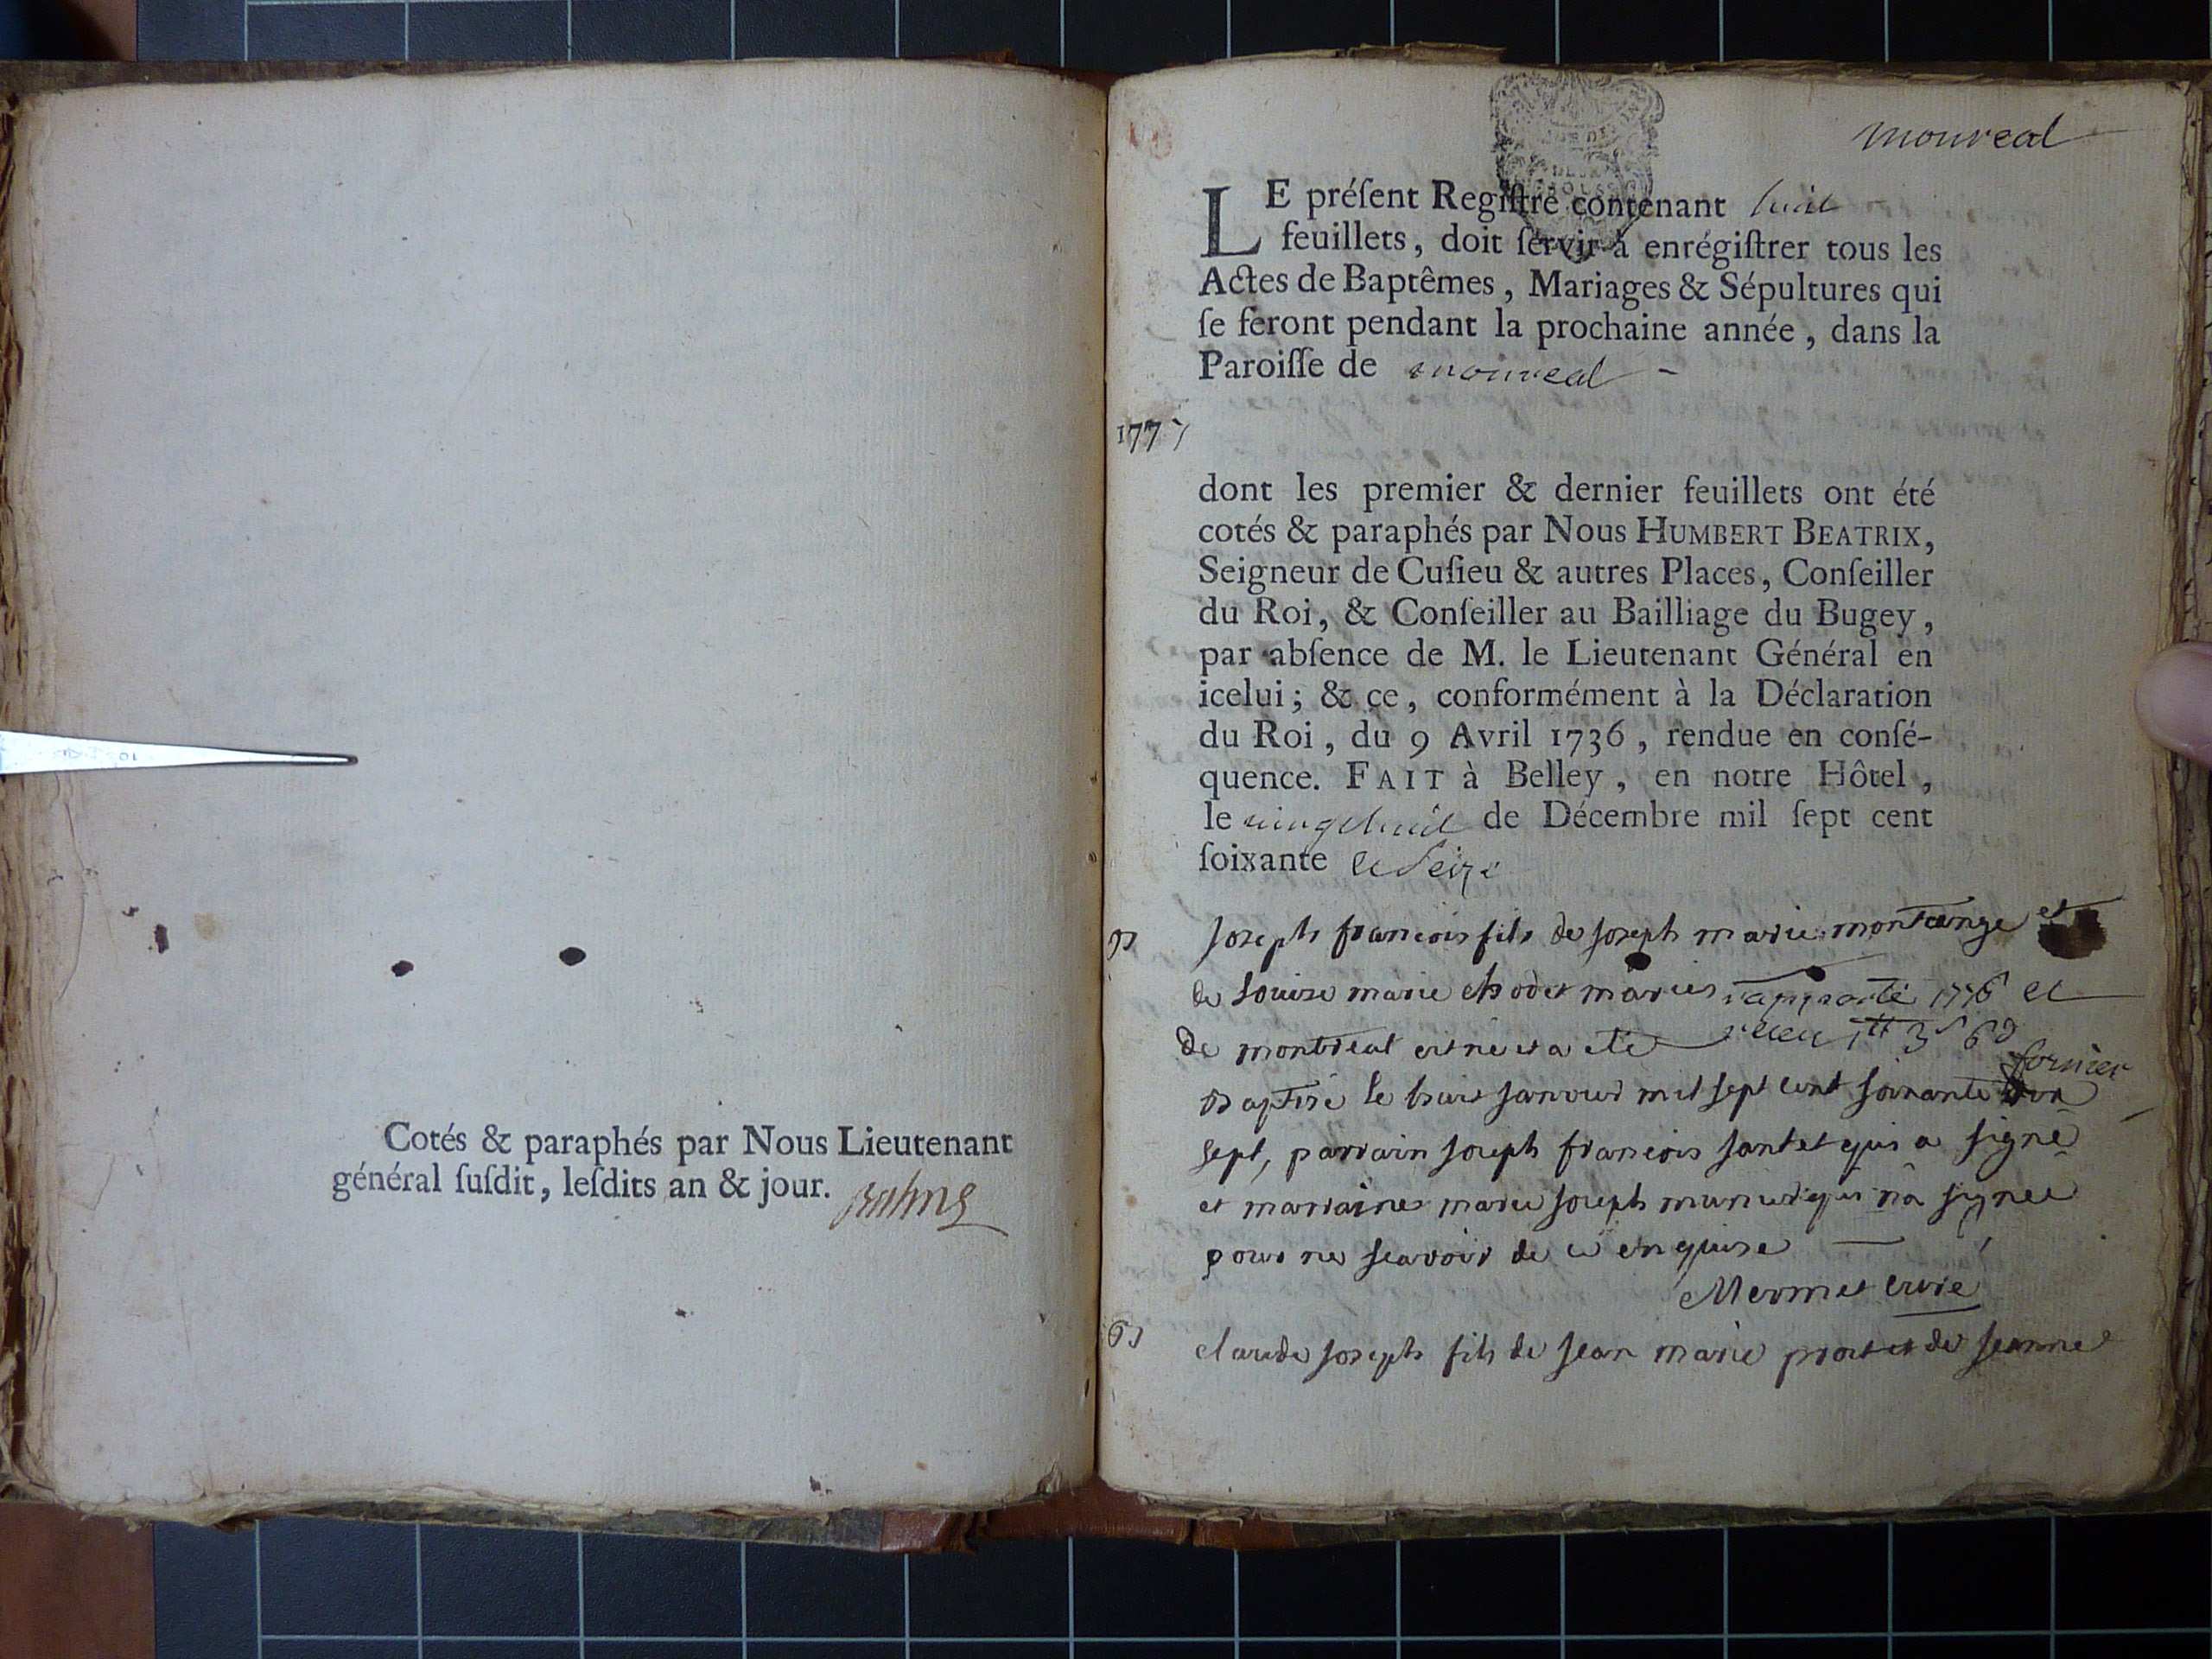 Cotés & paraphés par Nous Lieutenant
général ſuſdit, leſdits an & jour.
monreal
LE préſent Regiſtre contenant huit
feuillets, doit ſervir à enrégiſtrer tous les
Actes de Baptêmes, Mariages & Sépultures qui
ſe feront pendant la prochaine année, dans la
Paroiſſe de monreal -
1777
dont les premier & dernier feuillets ont été
cotés & paraphés par Nous HUMBERT BEATRIX,
Seigneur de Cuſieu & autres Places, Conſeiller
du Roi, & Conſeiller au Bailliage du Bugey,
par abſence de M. le Lieutenant Général en
icelui; & ce, conformément à la Déclaration
du Roi, du 9 Avril 1736, rendue en conſé-
quence. FAIT à Belley, en notre Hôtel,
le vingt huit de Décembre mil ſept cent
ſoixante et seize
Joseph francois fils de joseph marie montange et
de Louise marie chodet maries rapporté 1776 et
de montreal est né et a eté receu 3s 6d
fornier
Baptisé le huit janvier mil sept cent soixante dix
sept, parrain joseph francois jantet qui a signé
et marraine marie joseph munier qui n'a signee
pour ne scavoir de ce enquise
Mermet curé
claude joseph fils de jean marie prost et de jeanne